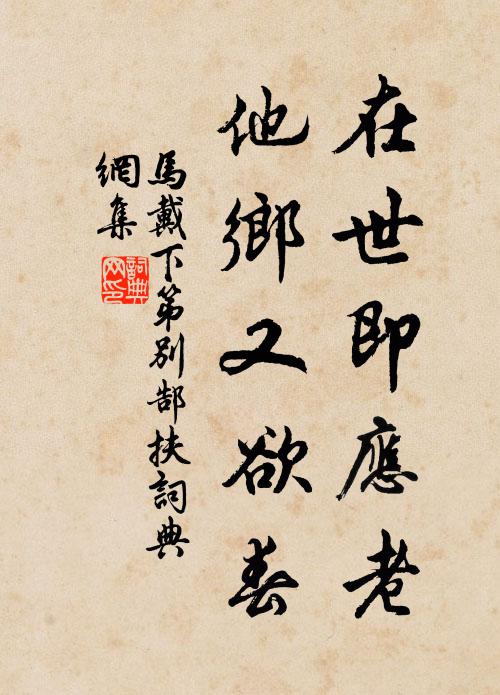 在世即應老
他鄉又欲春
馬戴下第別郜扶詞典
網集
詞典網印